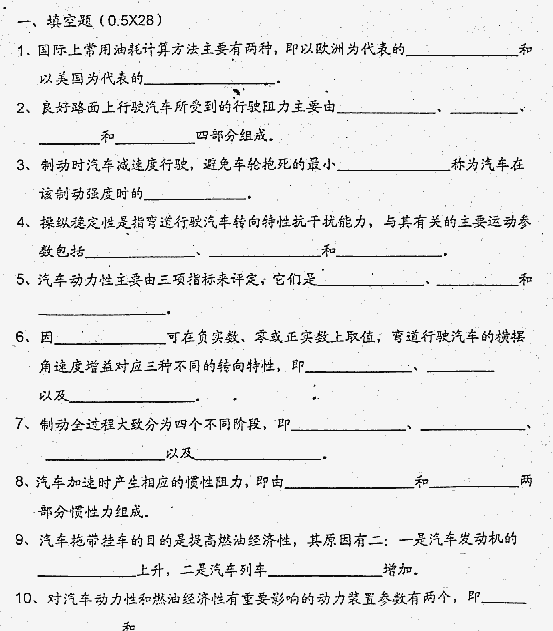 一、填空题(0.5X28)
1、国际上常用油耗计算方法主要有两种，即以欧洲为代表的____________和
以美国为代表的____________.
2、良好路面上行驶汽车所受到的行驶阻力主要由____________、________、
________和________四部分组成.
3、制动时汽车减速度行驶，避免车轮抱死的最小____________称为汽车在
该制动强度时的____________.
4、操纵稳定性是指弯道行驶汽车转向特性抗干扰能力，与其有关的主要运动参
数包括____________、____________和____________.
5、汽车动力性主要由三项指标来评定，它们是____________、________和
____________.
6、因____________可在负实数、零或正实数上取值，弯道行驶汽车的横摆
角速度增益对应三种不同的转向特性，即____________、________
以及____________.
7、制动全过程大致分为四个不同阶段，即____________、____________、
____________以及____________.
8、汽车加速时产生相应的惯性阻力，即由____________和________两
部分惯性力组成.
9、汽车拖带挂车的目的是提高燃油经济性，其原因有二：一是汽车发动机的
____________上升，二是汽车列车____________增加.
10、对汽车动力性和燃油经济性有重要影响的动力装置参数有两个，即_____
____________和